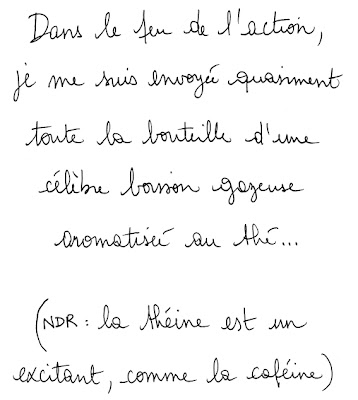 Dans le feu de l'action,
je me suis envoyée quasiment
toute la bouteille d'une
célèbre boisson gazeuse
aromatisée au thé...
(NDR : la théine est un
excitant, comme la caféine)